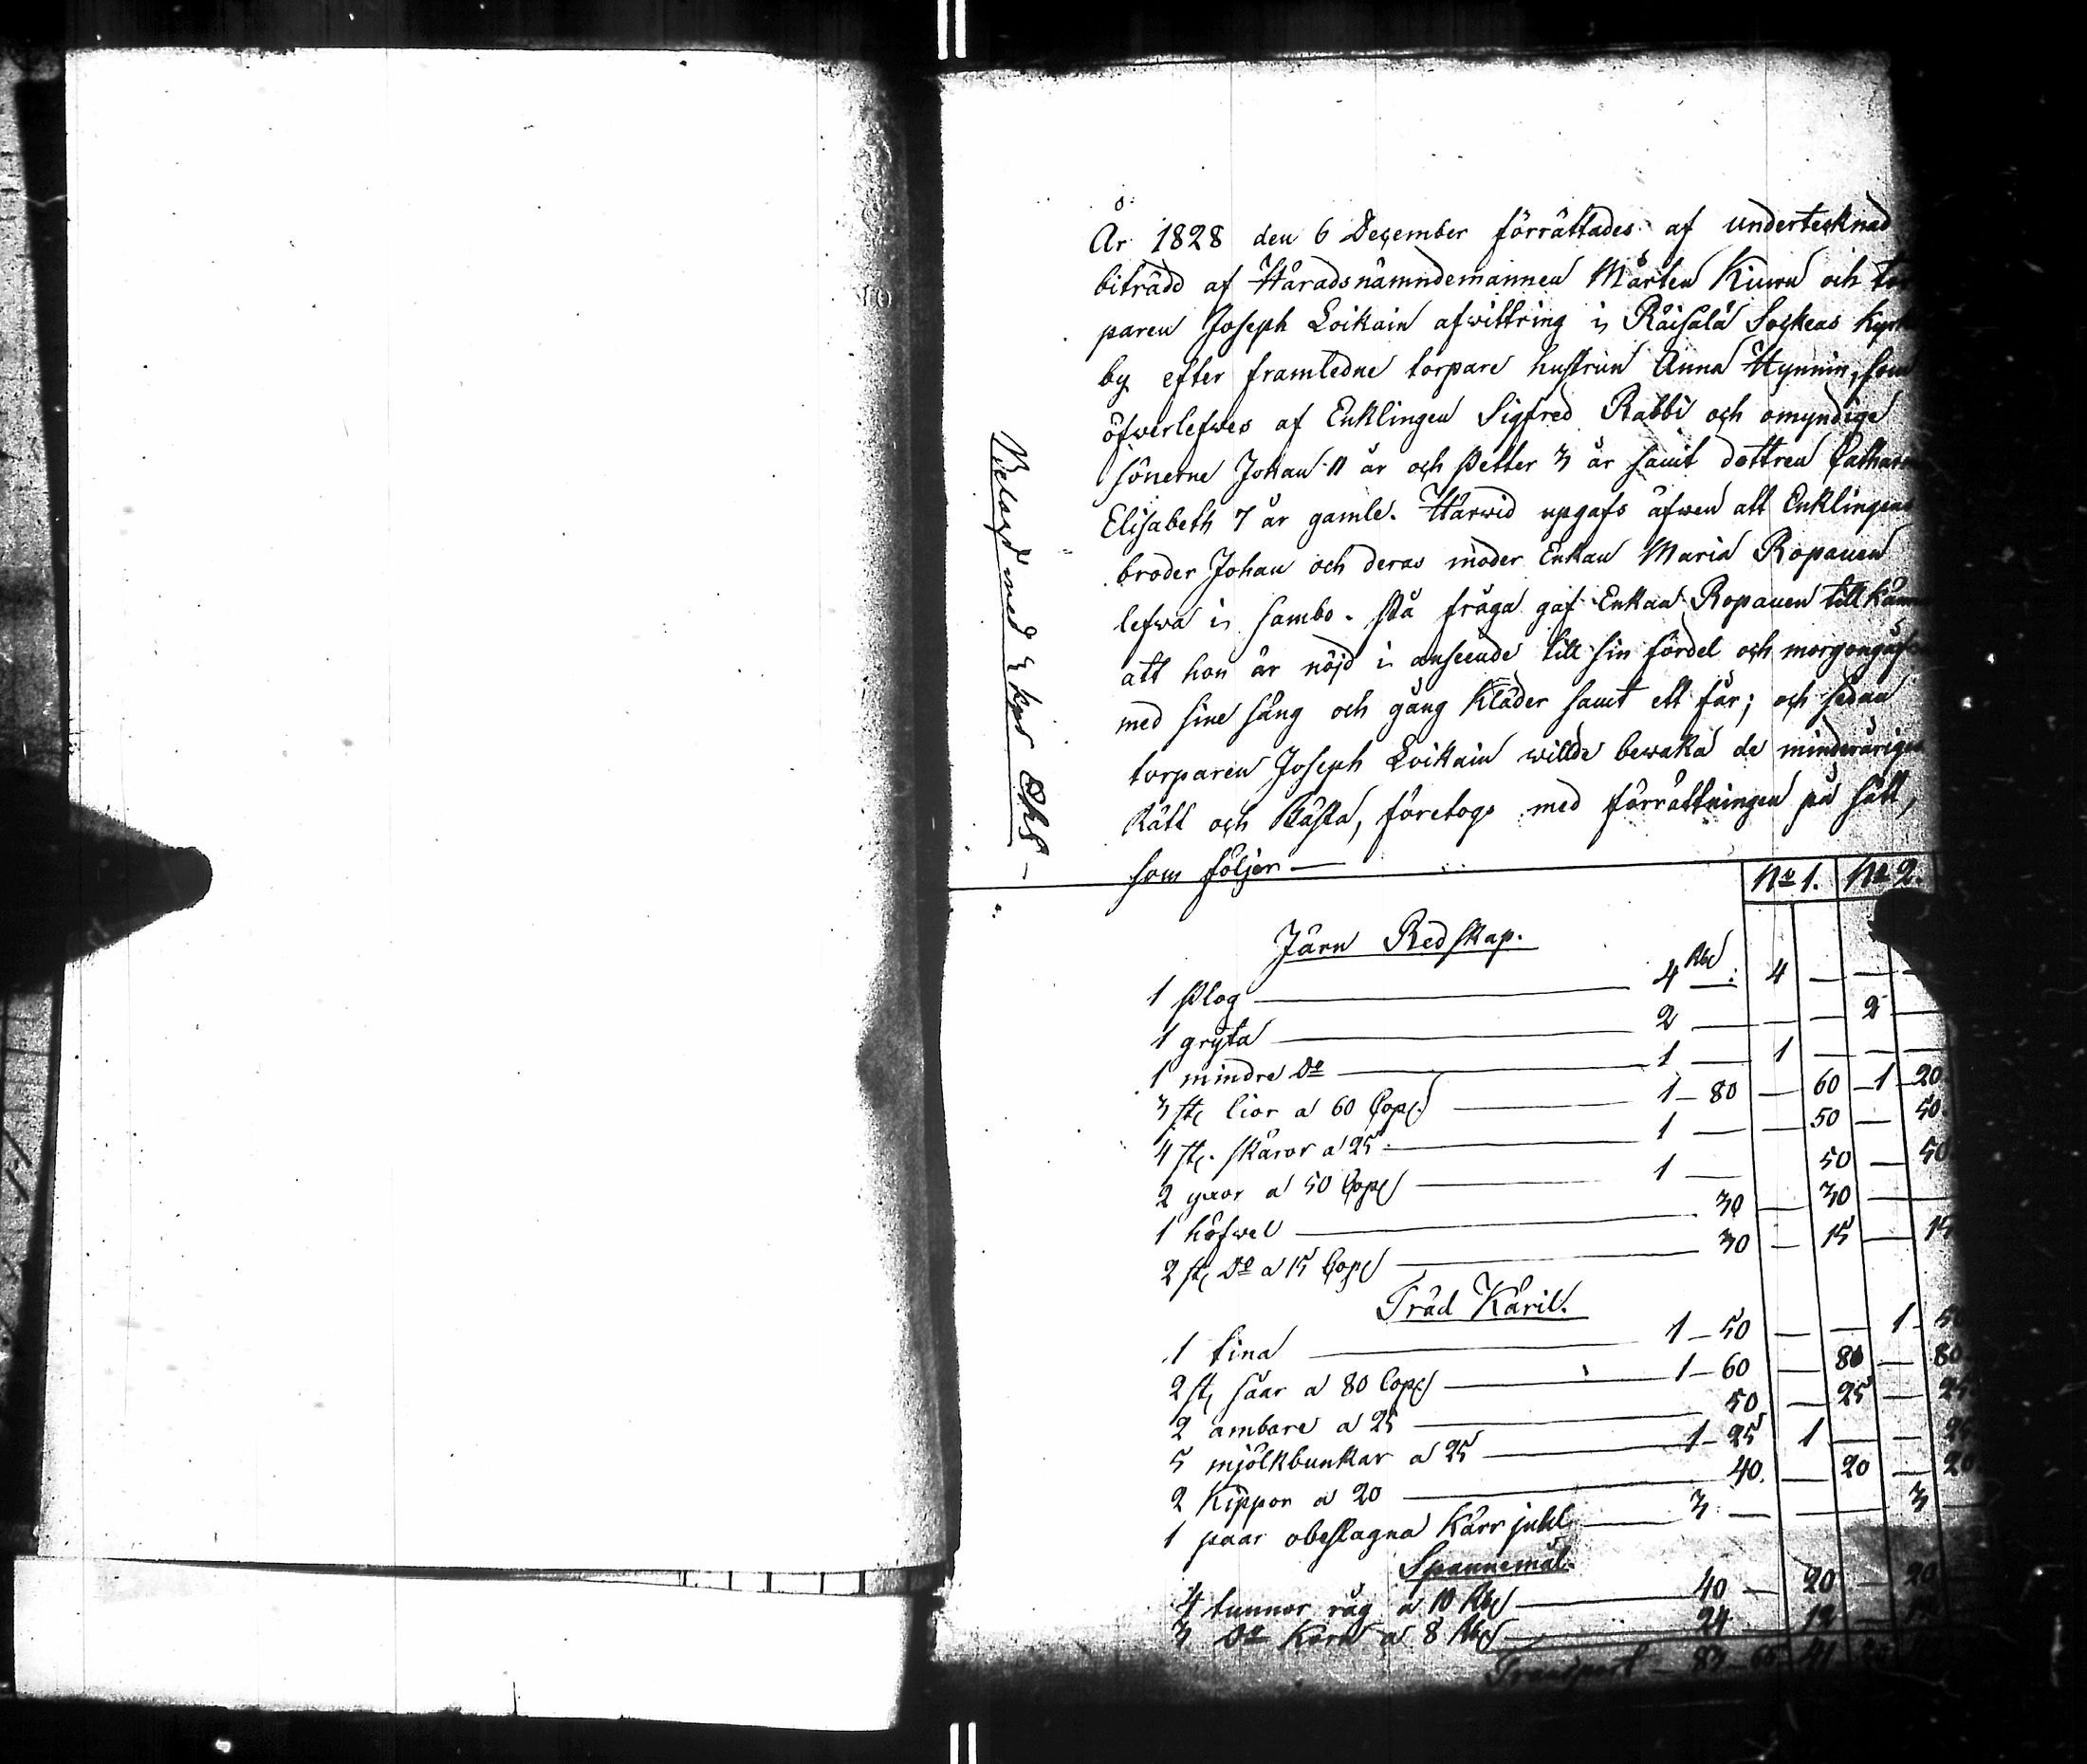 År 1828 den 6 December förrättades af undertecknad
biträdd af Häradsnämndemannen Mårten Kiuru och tor
paren Joseph Loikain afwittring i Räisälä Sockens Kyrk
by efter framledne torpare hustrun Anna Hynnin, som
öfwerlefwes af Enklingen Sigfred Rabbi och omyndige
sönerne Johan 11 år och Petter 3 år samt dottren Catharin
Elisabeth 7 år gamle. Härwid upgafs äfwen att Enklingens
broder Johan och deras moder Enkan Maria Ropanen
lefwa i sambo. På fråga gaf Enkan Ropanen tillkänn
att hon är nöjd i anseende till sin fördel och morgongåf
med sine säng och gång kläder samt ett får; och sedan
torparen Joseph Loikain willde bewaka de minderåriges
Rätt och Bästa, företogs med förrättningen på sätt,
som följer —
Belagd med
No 1. No 2.
Järn Redskap.
1 Plog — 4 Rbl. 4 — — —
1 gryta — 2 — — — 2 —
1 mindre Do — 1 — 1 — — —
3 st. lior a 60 Cop. — 1 – 80 — 60 – 1 – 20
4 st. skäror a 25 — 1 — — 50 — 50
2 yxor a 50 Cop. — 1 — 50 — 50
1 höfwel — 30 — 30 — —
2 st. Do a 15 Cop. — 30 — 15 — 15
Träd Käril.
1 tina — 1 – 50 — — 1 – 50
2 st. såar a 80 Cop. — 1 – 60 — 80 — 80
2 ambare a 25 — 50 — 25 — 25
5 mjölkbunkar a 25 — 1 – 25 1 — — 25
2 Kippor a 20 — 40. — 20 — 20
1 paar obeslagna Kärr juhl — 3 — — 3 —
Spannemål.
4 tunnor råg a 10 Rbl — 40 — 20 — 20
3 Do Korn a 8 Rbl — 24 12 — 12
Transport — 83 – 65 41 20